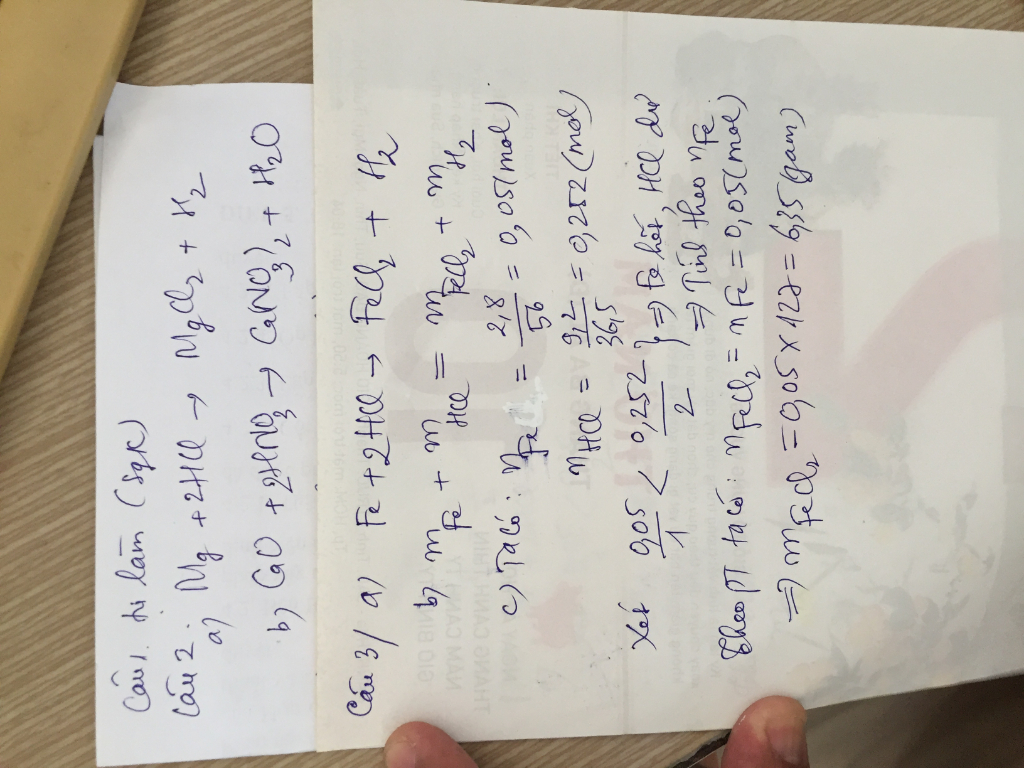 Câu 1. tự làm (sgk)
Câu 2:
a) Mg + 2HCl → MgCl2 + H2
b) CaO + 2HNO3 → Ca(NO3)2 + H2O
Câu 3/ a) Fe + 2HCl → FeCl2 + H2
b) mFe + mHCl = mFeCl2 + mH2
c) Ta có: nFe = 2,8/56 = 0,05(mol).
nHCl = 9,2/36,5 = 0,252(mol)
Xét 0,05/1 < 0,252/2 } => Fe hết, HCl dư
=> Tính theo nFe.
Theo PT ta có: nFeCl2 = nFe = 0,05(mol)
=> mFeCl2 = 0,05 x 127 = 6,35(gam)